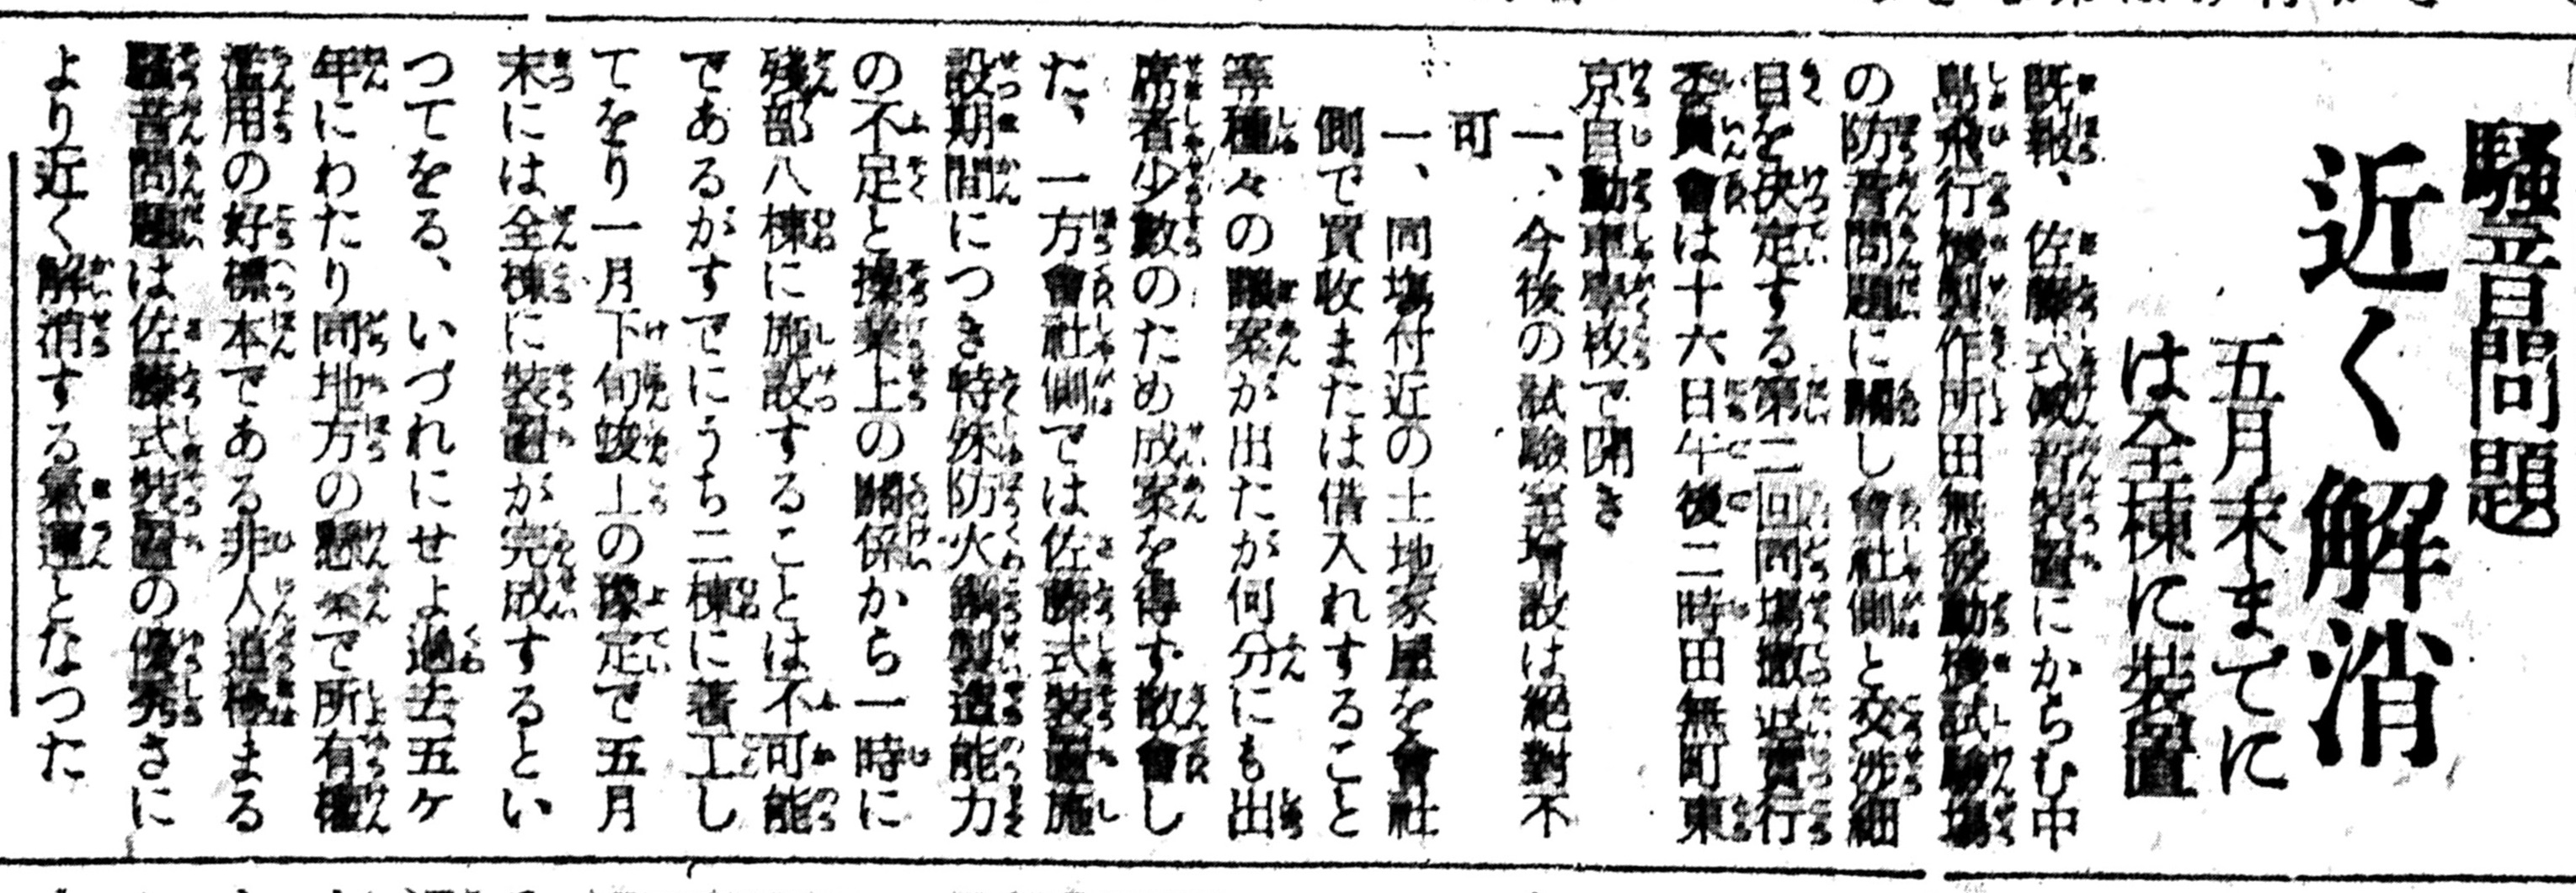 騷音問題
近く解消
五月末までに
は全棟に裝置
既報、佐藤式減音裝置にからむ中
島飛行機製作所田無發動機試驗場
の防音問題に關し會社側と交渉細
目を決定する第二回同場撤退實行
委員會は十六日午後二時田無町東
京自動車學校で開き
一、今後の試驗室增設は絕對不
可
一、同場付近の土地家屋を會社
側で買收または借入れすること
等種々の懸案が出たが何分にも出
席者少數のため成案を得ず散會し
た、一方會社側では佐藤式裝置施
設期間につき特殊防火鋼製造能力
の不足と操業上の關係から一時に
殘部八棟に施設することは不可能
であるがすでにうち二棟に著工し
てをり一月下旬竣上の豫定で五月
末には全棟に裝置が完成するとい
つてをる、いづれにせよ過去五ケ
年にわたり同地方の懸案で所有權
濫用の好標本である非人道極まる
騷音問題は佐藤式裝置の優秀さに
より近く解消する氣運となつた